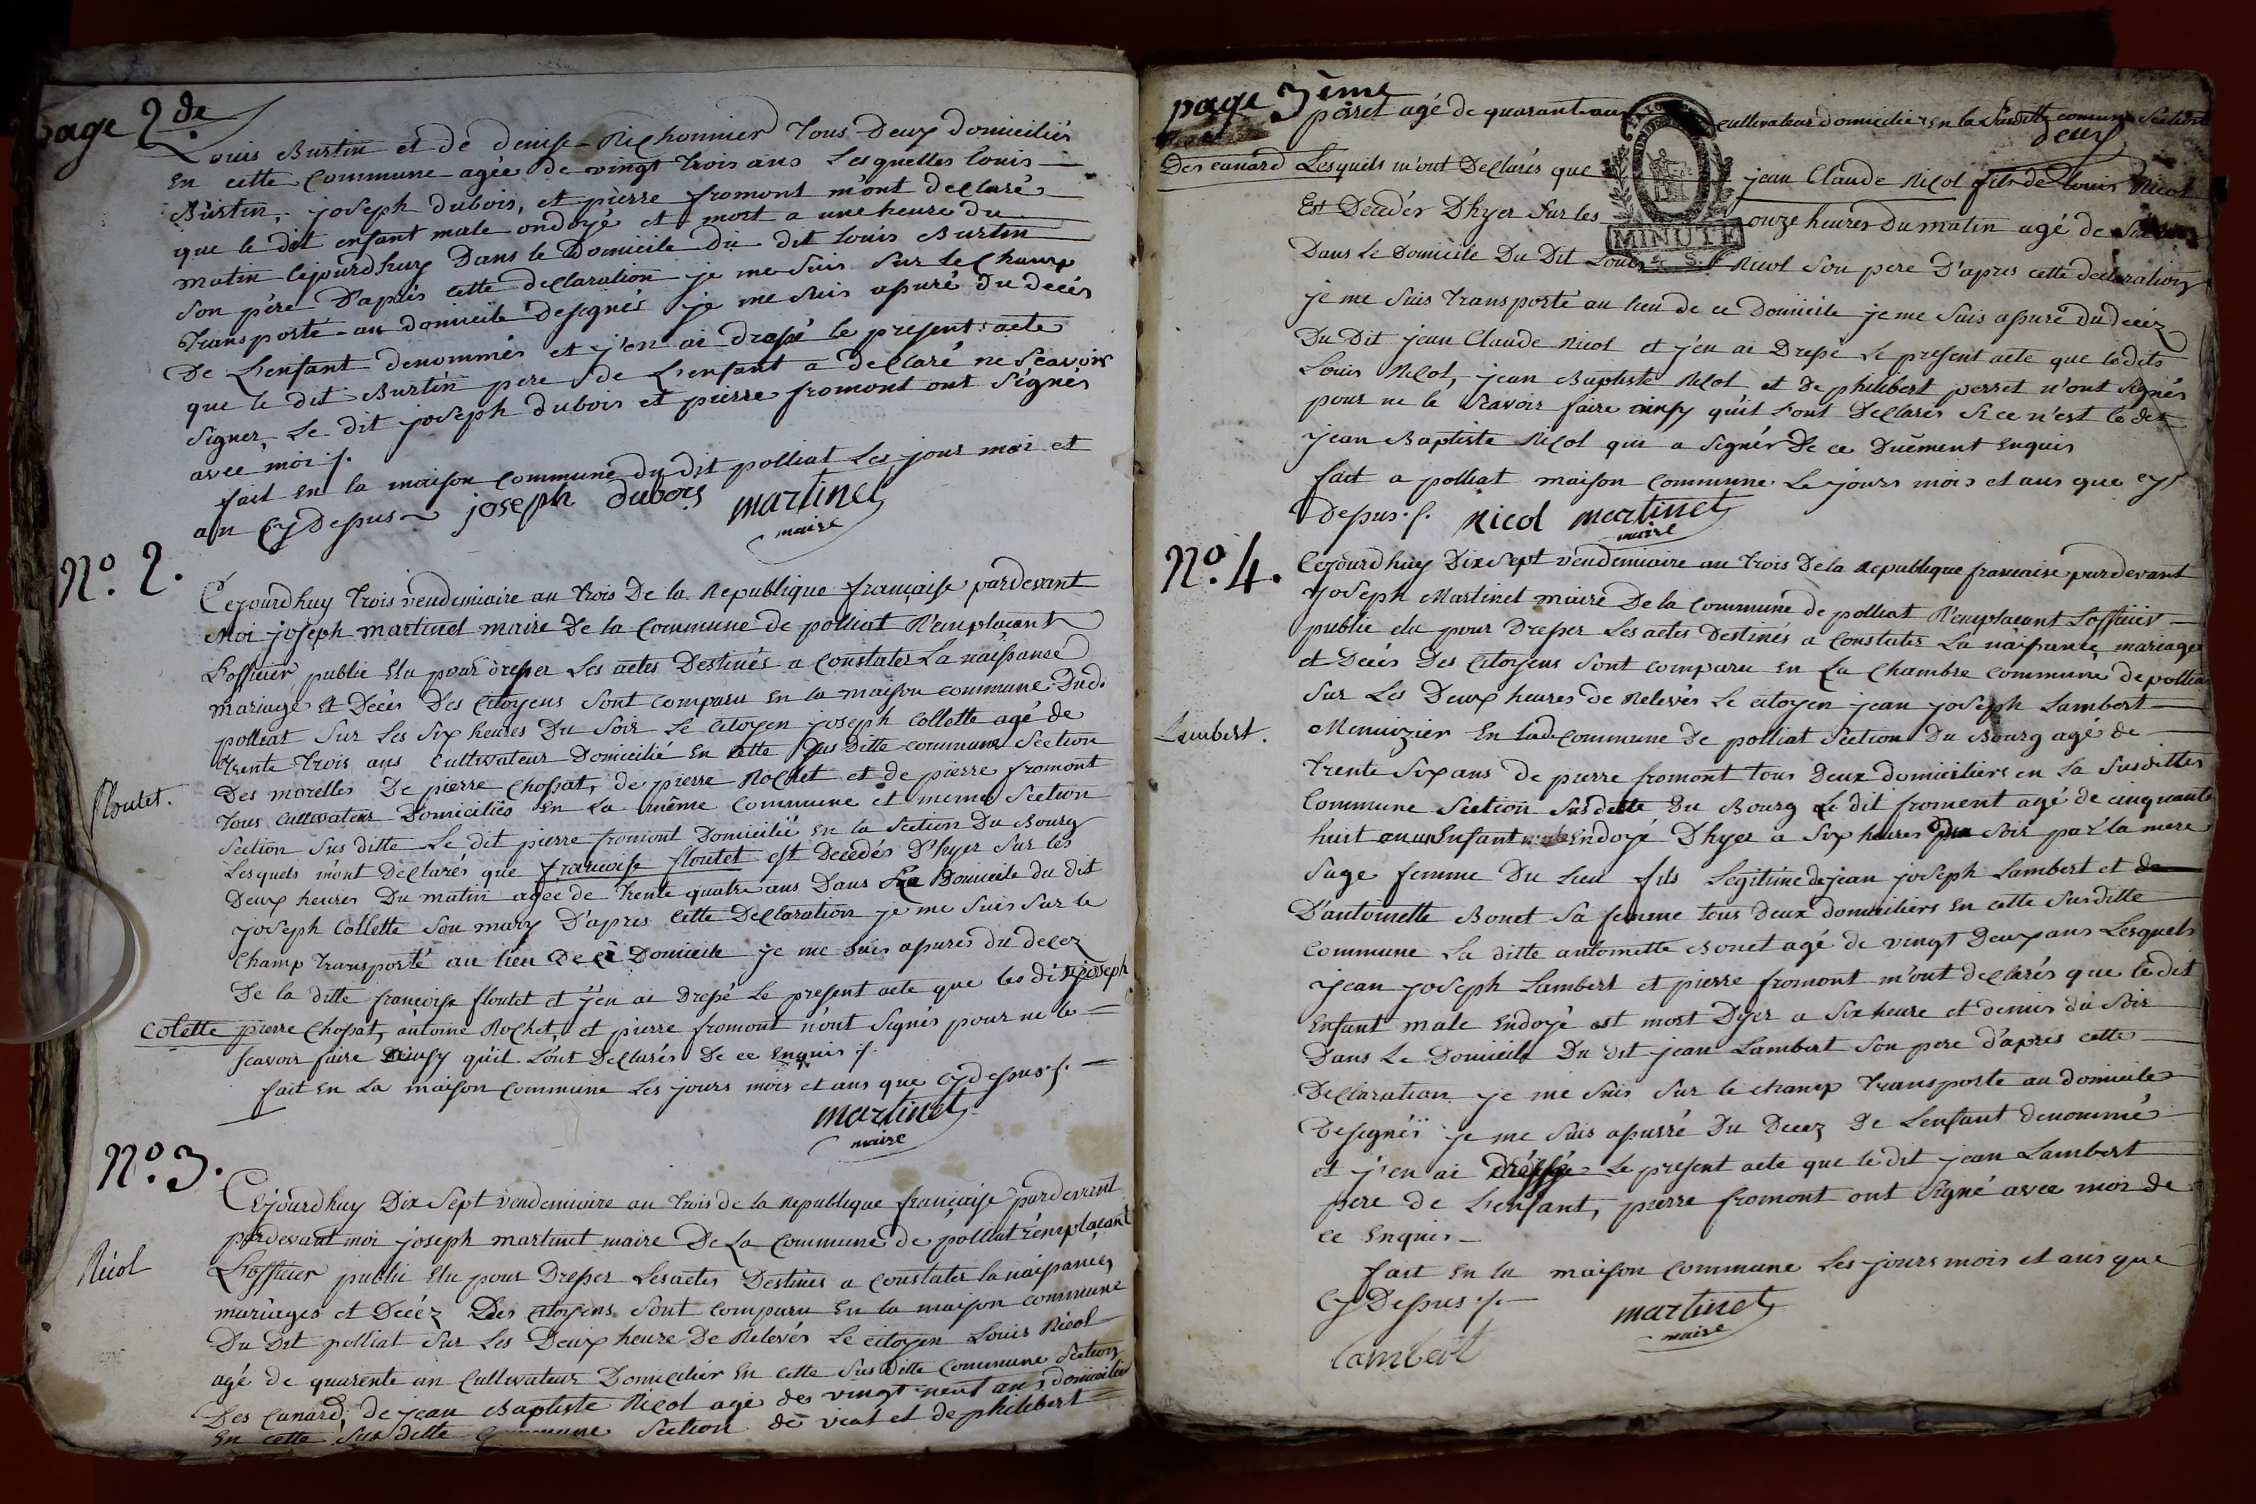 page 2de
Louis Burtin et de denise Richonnier tous Deux domiciliés
En cette Commune agée de vingt trois ans Lesquelles Louis
Burtin, joseph dubois, et pierre fromont m'ont declaré
que le dit enfant male ondoyé et mort a une heure du
matin Cejourdhuy Dans le Domicile du dit Louis Burtin
son père D'après cette declaration je me suis sur le Champ
Transporté au domicile designés je me suis assuré du decés
De L'enfant denommés et j'en ai dressé le present acte
que le dit Burtin pere de L'enfant a declaré ne Scavoir
signer, Le dit joseph dubois et pierre fromont ont Signés
avec moi ./.
fait En la maison Commune du dit polliat Les jour mois et
an Cy Dessus joseph dubois martinet
maire
No. 2.
Cejourdhuy trois vendemiaire an trois De la Republique française pardevant
Moi joseph martinet maire De la Commune de polliat Remplacant
L'officier public Elu pour dresser Les actes Destinés a Constater La naissance
mariage et Decés Des Citoyens sont comparu En la maison commune Dud.
polliat Sur Les Six heures Du Soir Le Citoyen joseph Collette agé de
trente trois ans Cultivateur Domicilié En cette Sus Ditte commune Section
Des morelles De pierre Chossat, de pierre Rochet et de pierre fromont
floutet.
tous Cultivateurs Domiciliés En La même Commune et meme Section
Section sus ditte Le dit pierre fromont Domicilié En la Section Du Bourg
Lesquels m'ont Declarés que francoise floutet est Decedés D'hyer Sur les
Deux heures Du matin agée de trente quatre ans Dans Le Domicile du dit
joseph Collette son mary D'apres Cette Declaration je me suis sur le
Champ transporté au lieu De Ce Domicile je me suis assurés du decez
De la ditte francoise floutet et j'en ai Dressé Le present acte que les dits joseph
Colette pierre Chossat, antoine Rochet, et pierre fromont n'ont Signés pour ne le
scavoir faire ainsy qu'il L'ont Declarés De ce Enquis ./.
fait En La maison Commune Les jours mois et ans que Cy dessus ./.
martinet
maire
No. 3.
Cejourdhuy Dix Sept vendemiaire an trois de la Republique française pardevant
pardevant moi joseph martinet maire De La Commune de polliat remplaçant
Nicol
L'officier public Elu pour Dresser Les actes Destinés a Constater la naissances
mariages et Decéz Des Citoyens sont comparu En la maison commune
Du Dit polliat Sur Les Deux heure De Relevés Le citoyen Louis Nicol
agé de quarente an Cultivateur Domicilier En cette Sus Ditte Commune Section
Des Canard, de jean Baptiste Nicol agé de vingt neuf ans domicilié
En cette Sus ditte Commune Section de viat et de philibert
page 3ème
perret agé de quarante ans cultivateur domicilier En la Susditte commune Section
deux
Des canard Lesquels m'ont Declarés que jean Claude Nicol fils de Louis Nicol
Est Decedér Dhyer Sur les onze heures Du matin agé de
MINUTE
Dans Le Domicile Du Dit Louis Nicol Son pere D'apres cette declaration
je me suis transporté au lieu de ce Domicile je me suis assuré du decéz
Du Dit jean Claude Nicol et j'en ai Dressé Le present acte que lesdits
Louis Nicol, jean Baptiste Nicol et De philibert perret n'ont Signés
pour ne le Scavoir faire ainsy qu'il L'ont Declarés Si ce n'est le dit
jean Baptiste Nicol qui a Signér De ce Duement Enquis
fait a polliat maison Commune Le jours mois et ans que cy
Dessus ./. Nicol martinet
maire
No. 4.
Cejourdhuy Dix Sept vendemiaire an trois De la Republique francaise pardevant
joseph Martinet maire De la Commune de polliat Remplacant L'officier
public elu pour Dresser Les actes Destinés a Constater La naissance, mariages
et Decés Des Citoyens Sont comparu En La Chambre Commune de polliat
Sur Les Deux heures de Relevés Le citoyen jean joseph Lambert
Lambert.
Menuizier En Lad. Commune De polliat Section Du Bourg agé de
trente Six ans De pierre fromont tous Deux domiciliers en La Susdittes
Commune Section Susditte Du Bourg Le dit froment agé de cinquante
huit an un Enfant male Endoyé D'hyer a Six heures Du Soir par la mere
Sage femme Du Lieu fils Legitime de jean joseph Lambert et de
D'antoinette Bonet Sa femme tous Deux domiciliers En cette Susditte
Commune La ditte antoinette Bonet agé de vingt Deux ans Lesquels
jean joseph Lambert et pierre fromont m'ont declarés que le dit
Enfant male Endoyé est mort Dyer a Six heure et demis du Soir
Dans Le Domicile Du dit jean Lambert Son pere d'apres cette
Declaration je me suis Sur le champ transporté au domicile
Designés je me suis assurré Du Decez De L'enfant denommé
et j'en ai dressé Le present acte que le dit jean Lambert
pere De L'enfant, pierre fromont ont Signé avec moi de
ce Enquis
fait En la maison Commune Les jours mois et ans que
Cy Dessus ./. martinet
maire
Lambert